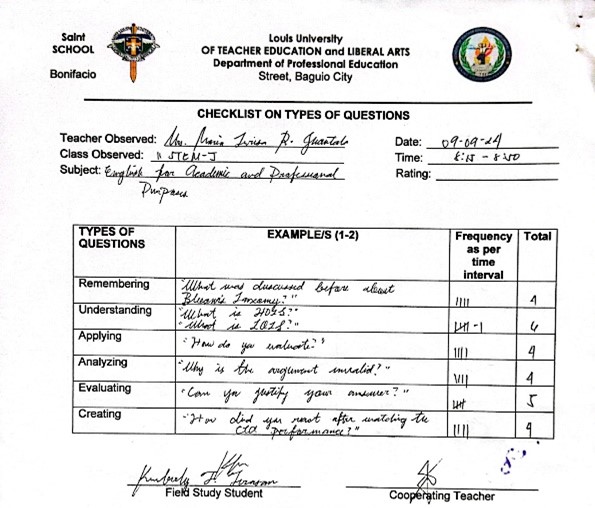 Saint Louis University
SCHOOL OF TEACHER EDUCATION and LIBERAL ARTS
Department of Professional Education
Bonifacio Street, Baguio City
CHECKLIST ON TYPES OF QUESTIONS
Teacher Observed: Ms. Maria R.
Date: 09-09-24
Class Observed: 11 STEM-J
Time: 8:15 - 8:50
Subject: English for Academic and Professional
Rating:
Purposes
TYPES OF QUESTIONS EXAMPLE/S (1-2) Frequency as per time interval Total
Remembering "What was discussed before about
Bloom's Taxonomy?" 4
Understanding "What is HOTS?"
"What is LOTS?" -1 6
Applying "How do you evaluate?" 4
Analyzing "Why is the argument invalid?" 4
Evaluating "Can you justify your answer?" 5
Creating "How did you react after watching the
performance?" 4
Kimberly
Field Study Student
Cooperating Teacher